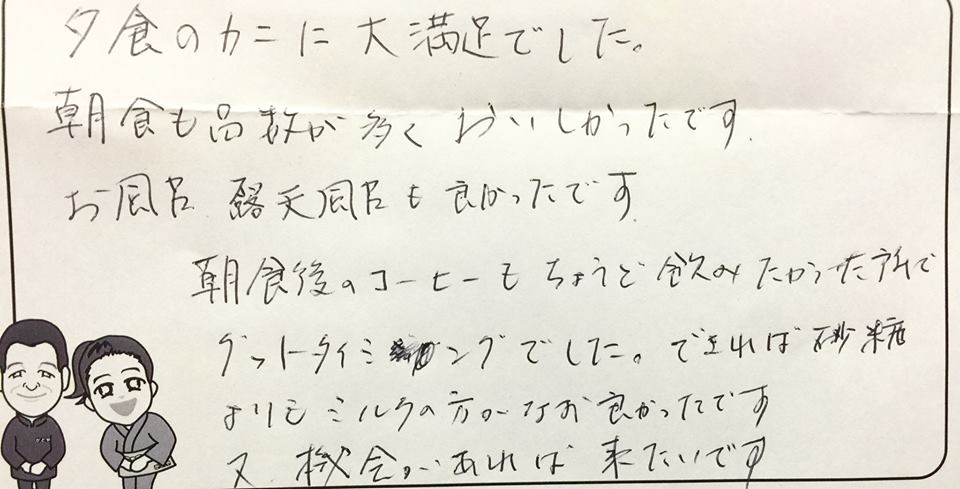 夕食のカニに大満足でした。
朝食も品数が多くおいしかったです.
お風呂 露天風呂も良かったです.
朝食後のコーヒーもちょうど飲みたかった所で
グットタイミングでした。できれば砂糖
よりもミルクの方がなお良かったです
又 機会があれば来たいです